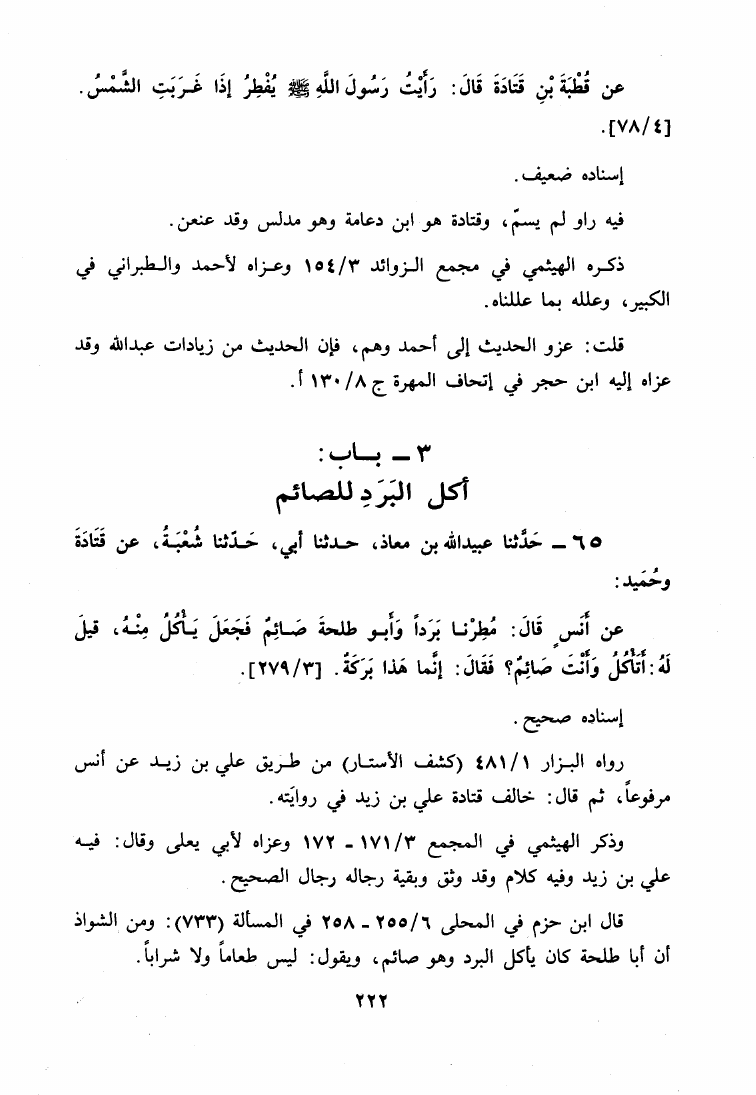 عن قُطْبَةَ بْنِ قَتَادَةَ قَالَ: رَأَيْتُ رَسُولَ اللَّهِ ﷺ يُفْطِرُ إِذَا غَرَبَتِ الشَّمْسُ.
[٧٨/٤].
إسناده ضعيف.
فيه راو لم يسمّ، وقتادة هو ابن دعامة وهو مدلس وقد عنعن.
ذكره الهيثمي في مجمع الزوائد ١٥٤/٣ وعزاه لأحمد والطبراني في
الكبير، وعلله بما عللناه.
قلت: عزو الحديث إلى أحمد وهم، فإن الحديث من زيادات عبدالله وقد
عزاه إليه ابن حجر في إتحاف المهرة ج ١٣٠/٨ أ.
٣ ـ بـاب:
أكل البَرَدِ للصائم
٦٥ ـ حَدَّثنا عبيدالله بن معاذ، حدثنا أبي، حَدّثنا شُعْبَةُ، عن قَتَادَةَ
وحُمَيد:
عن أَنَسٍ قَالَ: مُطِرْنا بَرَداً وَأَبو طلحةَ صَائِمٌ فَجَعَلَ يَأْكُلُ مِنْهُ، قيلَ
لَهُ: أَتَأْكُلُ وَأَنْتَ صَائِمٌ؟ فَقَالَ: إنَّما هَذا بَرَكَةٌ. [٢٧٩/٣].
إسناده صحيح.
رواه البزار ٤٨١/١ (كشف الأستار) من طريق علي بن زيد عن أنس
مرفوعاً، ثم قال: خالف قتادة علي بن زيد في روايَته.
وذكر الهيثمي في المجمع ١٧١/٣ ـ ١٧٢ وعزاه لأبي يعلى وقال: فيه
علي بن زيد وفيه كلام وقد وثق وبقية رجاله رجال الصحيح.
قال ابن حزم في المحلى ٢٥٥/٦ ـ ٢٥٨ في المسألة (٧٣٣): ومن الشواذ
أن أبا طلحة كان يأكل البرد وهو صائم، ويقول: ليس طعاماً ولا شراباً.
٢٢٢